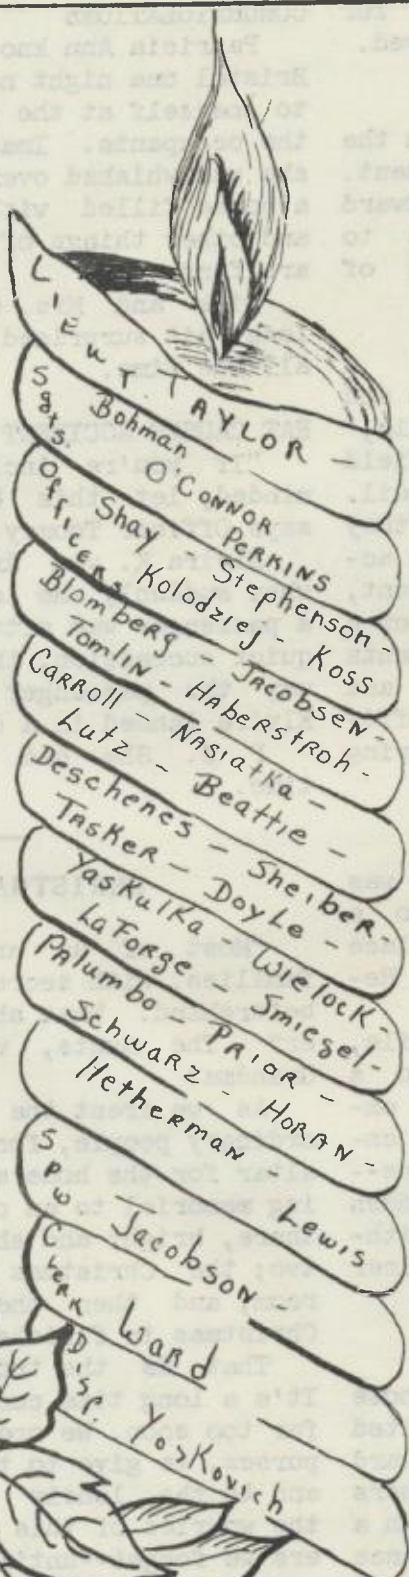 LIEUT. TAYLOR -
Sgts. Bohman O'CONNOR PERKINS
Officers Shay - Stephenson -
Kolodziej - Koss
Blomberg - Jacobsen -
Tomlin - Haberstroh -
CARROLL - Nasiatka -
Lutz - Beattie -
Deschenes - Sheiber -
TASKER - Doyle -
YaskulKa - Wielock -
LaForge - Smiegel -
Palumbo - PRIOR -
Schwarz - HORAN -
Hetherman
SPW - Jacobson - Lewis
CLERK Ward -
Disp. Yoskovich